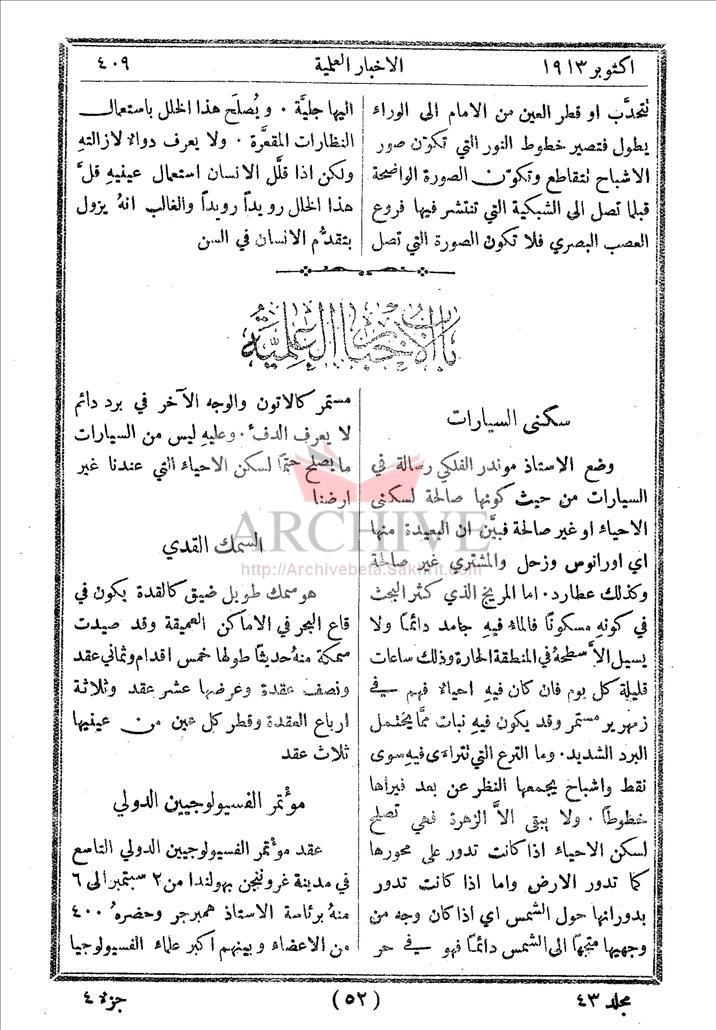 اكتوبر ١٩١٣
الاخبار العلمية
٤٠٩
تتحدَّب او قطر العين من الامام الى الوراء
يطول فتصير خطوط النور التي تكوّن صور
الاشباح تتقاطع وتكوّن الصورة الواضحة
قبلما تصل الى الشبكية التي تنتشر فيها فروع
العصب البصري فلا تكون الصورة التي تصل
اليها جليَّة ٠ ويُصلَح هذا الخلل باستعمال
النظارات المقعَّرة ٠ ولا يعرف دواء لازالتهِ
ولكن اذا قلَّل الانسان استعمال عينيهِ قلَّ
هذا الخلل رويداً رويداً والغالب انهُ يزول
بتقدُّم الانسان في السن
باب الاخبار العلمية
سكنى السيارات
وضع الاستاذ موندر الفلكي رسالة في
السيارات من حيث كونها صالحة لسكنى
الاحياء او غير صالحة فبيَّن ان البعيدة منها
اي اورانوس وزحل والمشتري غير صالحة
وكذلك عطارد ٠ اما المريخ الذي كثر البحث
في كونهِ مسكونًا فالماء فيهِ جامد دائمًا ولا
يسيل الاَّ سطحهُ في المنطقة الحارة وذلك ساعات
قليلة كل يوم فان كان فيهِ احياء فهم في
زمهرير مستمر وقد يكون فيهِ نبات ممَّا يحتمل
البرد الشديد ٠ وما الترع التي تتراءى فيهِ سوى
نقط واشباح يجمعها النظر عن بعد فيراها
خطوطًا ٠ ولا يبقى الاَّ الزهرة فهي تصلح
لسكن الاحياء اذا كانت تدور على محورها
كما تدور الارض واما اذا كانت تدور
بدورانها حول الشمس اي اذا كان وجه من
وجهيها متجهًا الى الشمس دائمًا فهو في حر
مستمر كالاتون والوجه الآخر في برد دائم
لا يعرف الدفء ٠ وعليهِ ليس من السيارات
ما يصلح حتمًا لسكن الاحياء التي عندنا غير
ارضنا
السمك القدي
هو سمك طويل ضيق كالقدة يكون في
قاع البحر في الاماكن العميقة وقد صيدت
سمكة منهُ حديثًا طولها خمس اقدام وثماني عقد
ونصف عقدة وعرضها عشر عقد وثلاثة
ارباع العقدة وقطر كل عين من عينيها
ثلاث عقد
مؤتمر الفسيولوجيين الدولي
عقد مؤتمر الفسيولوجيين الدولي التاسع
في مدينة غروننجن بهولندا من ٢ سبتمبر الى ٦
منهُ برئاسة الاستاذ همبرجر وحضرهُ ٤٠٠
من الاعضاء وبينهم اكبر علماء الفسيولوجيا
ARCHIVE
http://Archivebeta.Sakhrit.com
مجلد ٤٣
(٥٢)
جزء ٤